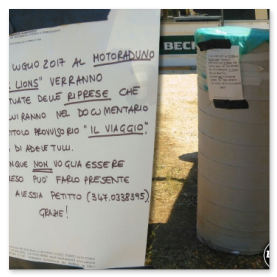 LUGLIO 2017 AL MOTORADUNO
LIONS" VERRANNO
TUATE DELLE RIPRESE CHE
UIRANNO NEL DOCUMENTARIO
TITOLO PROVVISORIO "IL VIAGGIO"
DI ADELE TULLI.
NQUE NON VOGLIA ESSERE
RESO PUÒ FARLO PRESENTE
ALESSIA PETITTO (347.0338395)
GRAZIE!
BECK